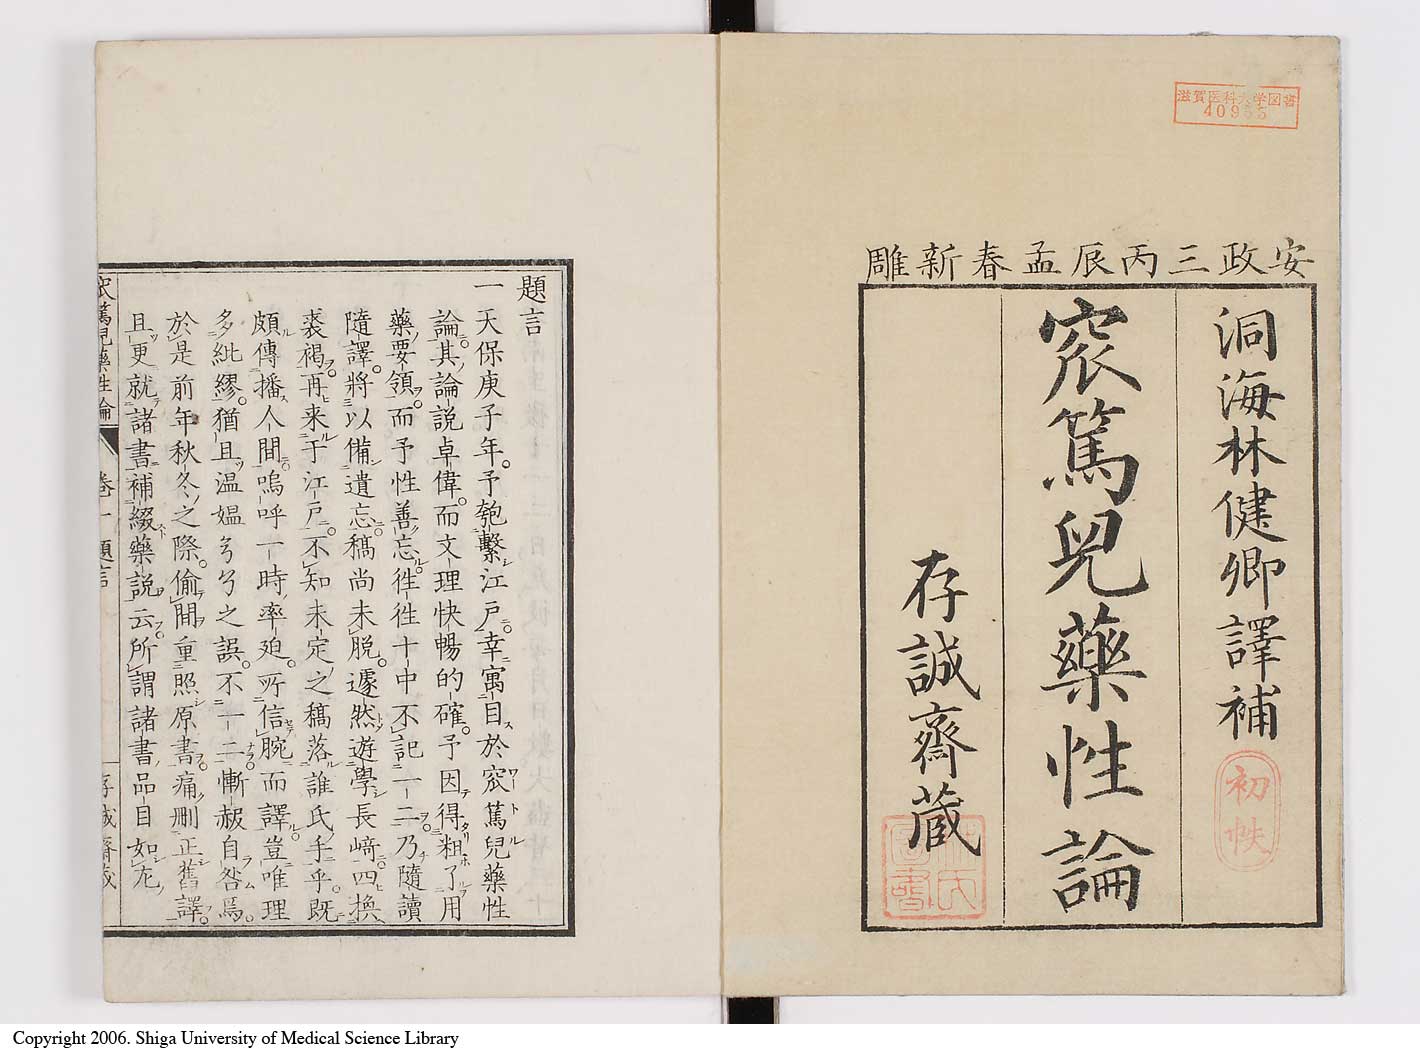 滋賀医科大学図書
安政三丙辰孟春新雕
洞海林健卿譯補
初帙
窊篤児藥性論
存誠齋蔵
題言
一天保庚子年。予匏繫江戸。幸寓目於窊篤兒藥性
論。其論説卓偉。而文理快暢的確。予因得粗了用
藥要領。而予性善忘。徃徃十中不記一二。乃隨讀
隨譯。將以備遺忘。稿尚未脱。遽然遊學長﨑。四換
裘褐。再来于江戸。不知未定之稿落誰氏手乎。既
頗傳播人間。嗚呼一時率廹。所信腕而譯。豈唯理
多紕繆。猶且温媼兮兮之誤。不一二。慚赧自咎焉。
於是前年秋冬之際。偷間重照原書。痛刪正舊譯。
且更就諸書補綴藥説云。所謂諸書品目如左。
窊篤兒藥性論 卷一 題言 存誠齋蔵
Copyright 2006. Shiga University of Medical Science Library